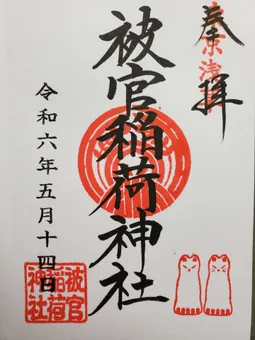 東京浅草
奉拝
被官稲荷神社
令和六年五月十四日
被官
稲荷
神社